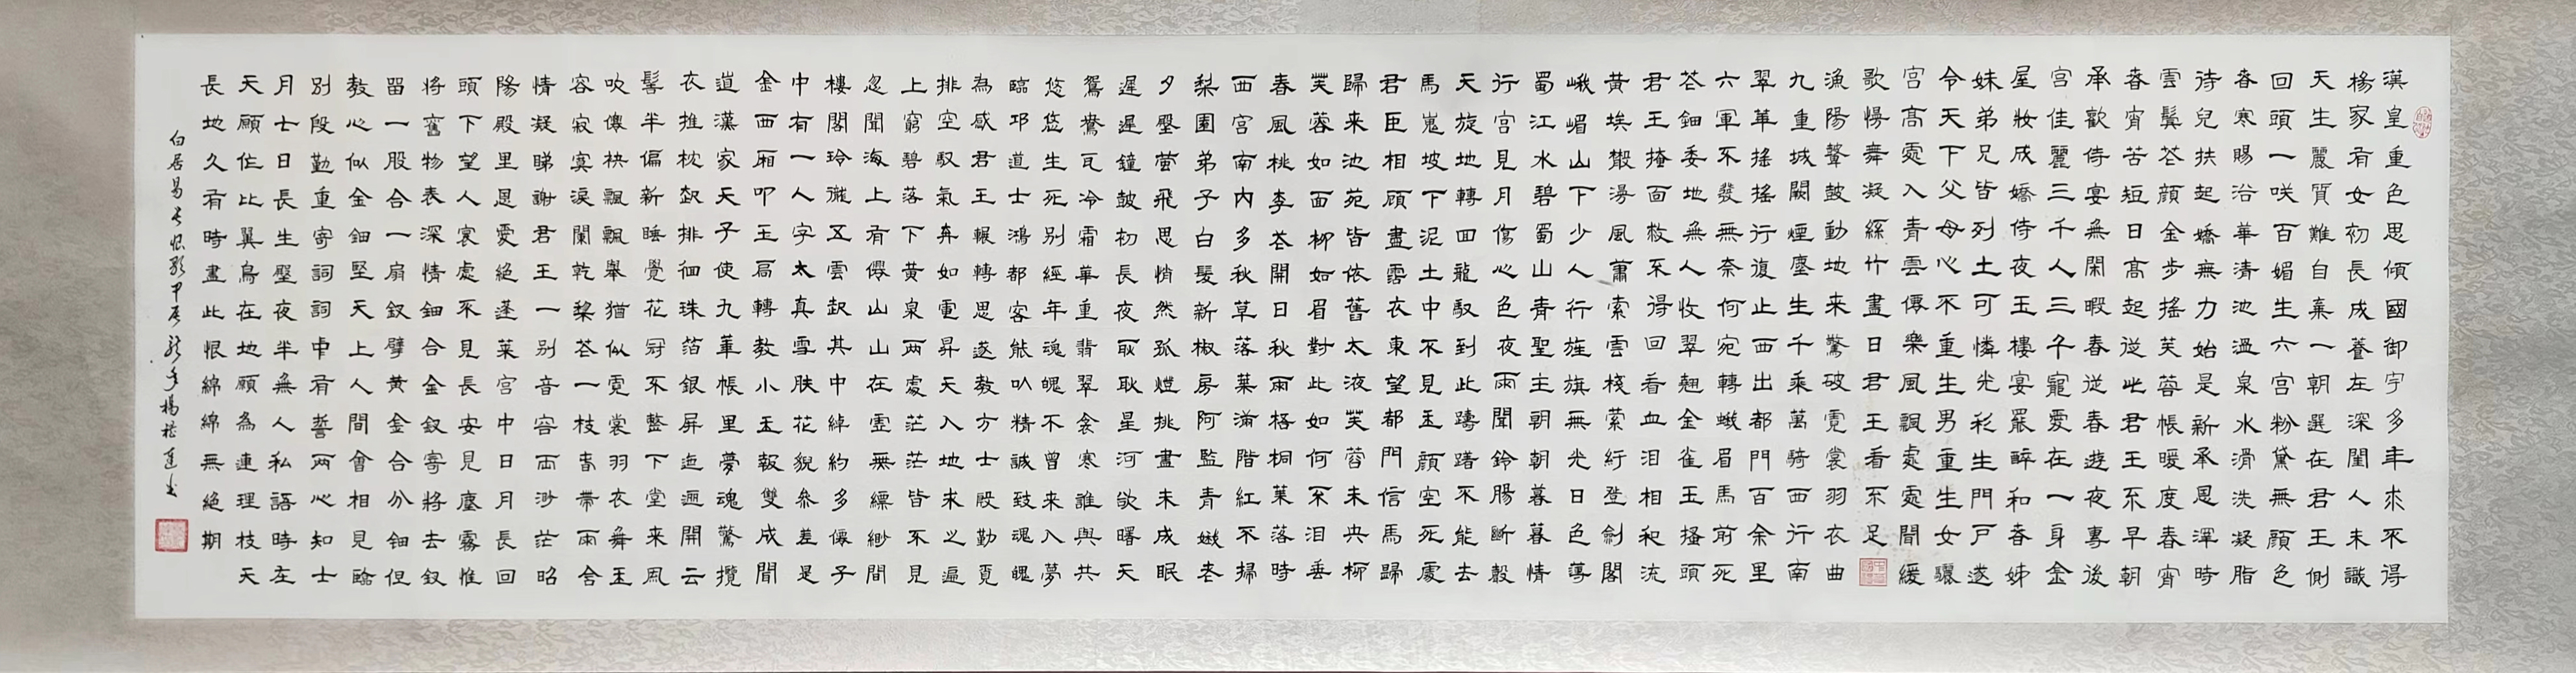 漢皇重色思傾國御宇多年求不得
楊家有女初長成養在深閨人未識
天生麗質難自棄一朝選在君王側
回頭一咲百媚生六宮粉黛無顏色
春寒賜浴華清池溫泉水滑洗凝脂
侍兒扶起嬌無力始是新承恩澤時
雲鬢花顏金步搖芙蓉帳暖度春宵
春宵苦短日高起從此君王不早朝
承歡侍宴無閑暇春從春遊夜專後
宮佳麗三千人三千寵愛在一身金
屋妝成嬌侍夜玉樓宴罷醉和春姊
妹弟兄皆列土可憐光彩生門戶遂
令天下父母心不重生男重生女驪
宮高處入青雲僊樂風飄處處聞緩
歌慢舞凝絲竹盡日君王看不足
漁陽鼙鼓動地来驚破霓裳羽衣曲
九重城闕煙塵生千乘萬騎西行南
翠華搖搖行復止西出都門百余里
六軍不發無奈何宛轉蛾眉馬前死
花鈿委地無人收翠翹金雀玉搔頭
君王掩面救不得回看血泪相和流
黃埃散漫風蕭索雲棧縈紆登劍閣
峨嵋山下少人行旌旗無光日色薄
蜀江水碧蜀山青聖主朝朝暮暮情
行宮見月傷心色夜雨聞鈴腸斷聲
天旋地轉回龍馭到此躊躇不能去
馬嵬坡下泥土中不見玉顏空死處
君臣相顧盡霑衣東望都門信馬歸
歸来池苑皆依舊太液芙蓉未央柳
芙蓉如面柳如眉對此如何不泪垂
春風桃李花開日秋雨梧桐葉落時
西宮南内多秋草落葉滿階紅不掃
梨園弟子白髮新椒房阿監青娥老
夕殿螢飛思悄然孤燈挑盡未成眠
遲遲鐘鼓初長夜耿耿星河欲曙天
鴛鴦瓦冷霜華重翡翠衾寒誰與共
悠悠生死別經年魂魄不曾来入夢
臨邛道士鴻都客能以精誠致魂魄
為感君王輾轉思遂教方士殷勤覓
排空馭氣奔如電昇天入地求之遍
上窮碧落下黃泉兩處茫茫皆不見
忽聞海上有僊山山在虛無縹緲間
樓閣玲瓏五雲起其中綽約多僊子
中有一人字太真雪膚花貌參差是
金西厢叩玉扃轉教小玉報雙成聞
道漢家天子使九華帳里夢魂驚攬
衣推枕起排徊珠箔銀屏迤邐開雲
髻半偏新睡覺花冠不整下堂来風
吹僊袂飄飄舉猶似霓裳羽衣舞玉
容寂寞淚闌乾梨花一枝春帶雨含
情凝睇謝君王一別音容兩渺茫昭
陽殿里恩愛絕蓬萊宮中日月長回
頭下望人寰處不見長安見塵霧惟
將舊物表深情鈿合金釵寄將去釵
留一股合一扇釵擘黃金合分鈿但
教心似金鈿堅天上人間會相見臨
別殷勤重寄詞詞中有誓兩心知七
月七日長生殿夜半無人私語時在
天願作比翼鳥在地願為連理枝天
長地久有時盡此恨綿綿無絕期
白居易長恨歌甲辰龍年楊